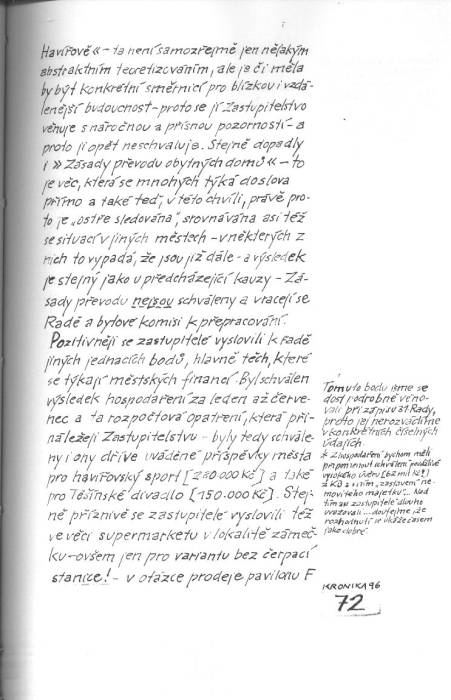 Havířově« – ta není samozřejmě jen nějakým
abstraktním teoretizováním, ale je či měla
by být konkrétní směrnicí pro blízkou i vzdá-
lenější budoucnost – proto se jí Zastupitelstvo
věnuje s náročnou a přísnou pozorností – a
proto ji opět neschvaluje. Stejně dopadly
i »Zásady převodu obytných domů« – to
je věc, která se mnohých týká doslova
přímo a také teď, v této chvíli, právě pro-
to je „ostře sledována", srovnávána asi též
se situací v jiných městech – v některých z
nich to vypadá, že jsou již dále – a výsledek
je stejný jako u předcházející kauzy – Zá-
sady převodu nejsou schváleny a vracejí se
Radě a bytové komisi k přepracování.
Pozitivněji se zastupitelé vyslovili k řadě
jiných jednacích bodů, hlavně těch, které
se týkají městských financí. Byl schválen
výsledek hospodaření za leden až červe-
nec a ta rozpočtová opatření, která pří-
náležejí Zastupitelstvu – byly tedy schvále-
ny i ony dříve uváděné příspěvky města
pro havířovský sport [280.000 Kč] a také
pro Těšínské divadlo [150.000 Kč]. Stej-
ně příznivě se zastupitelé vyslovili též
ve věci supermarketu v lokalitě zámeč-
ku – ovšem jen pro variantu bez čerpací
stanice! – v otázce prodeje pavilonu F
Tomuto bodu jsme se
dost podrobně věno-
vali při zápisu 31 Rady,
proto jej nerozvádíme
v konkrétních číselných
údajích.
* Z hospodaření bychom měli
připomenout schválení
vysokého úvěru [62 mil Kč!]
z KB a s ním „zastavení ne-
movitého majetku"... Nad
tím se zastupitelé dlouho
uvažovali... doufejme, že
rozhodnutí se ukáže časem
jako dobré.
KRONIKA 96
72